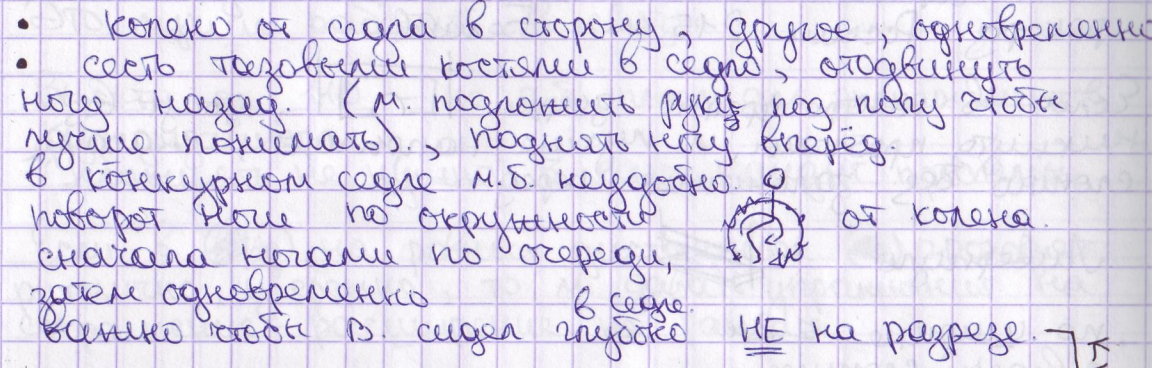 • колено от седла в сторону, другое, одновременно
• сесть тазовыми костями в седло, отодвинуть
ногу назад. (м. подложить руку под попу чтобы
лучше понимать), поднять ногу вперёд.
в конкурном седле м.б. неудобно.
поворот ноги по окружности от колена.
сначала ногами по очереди,
затем одновременно
важно чтобы В. сидел глубоко в седле. НЕ на разрезе.